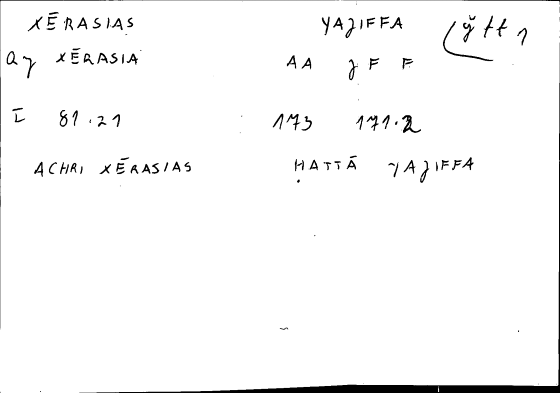 XĒRASIAS YAJIFFA
ay XĒRASIA AA J F F
I 81.21 173 171.2
ACHRI XĒRASIAS ḤATTĀ YAJIFFA